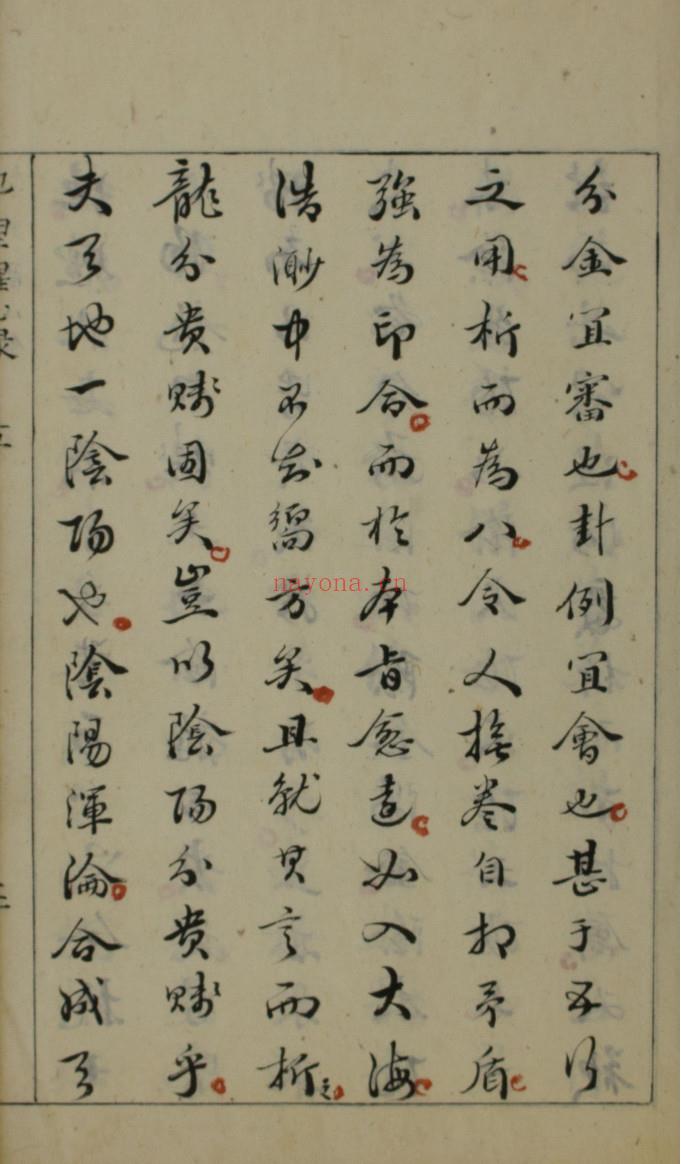 分金宜審也卦例宜會也甚于五行
之用析而為八令人撫卷自相矛盾
強為印合而於本旨愈遠如入大海
浩渺中不知嚮方矣且就其言而析之
龍分貴賤固矣豈以陰陽分貴賤乎
夫天地一陰陽也陰陽渾淪合成天
地理
nayona.cn